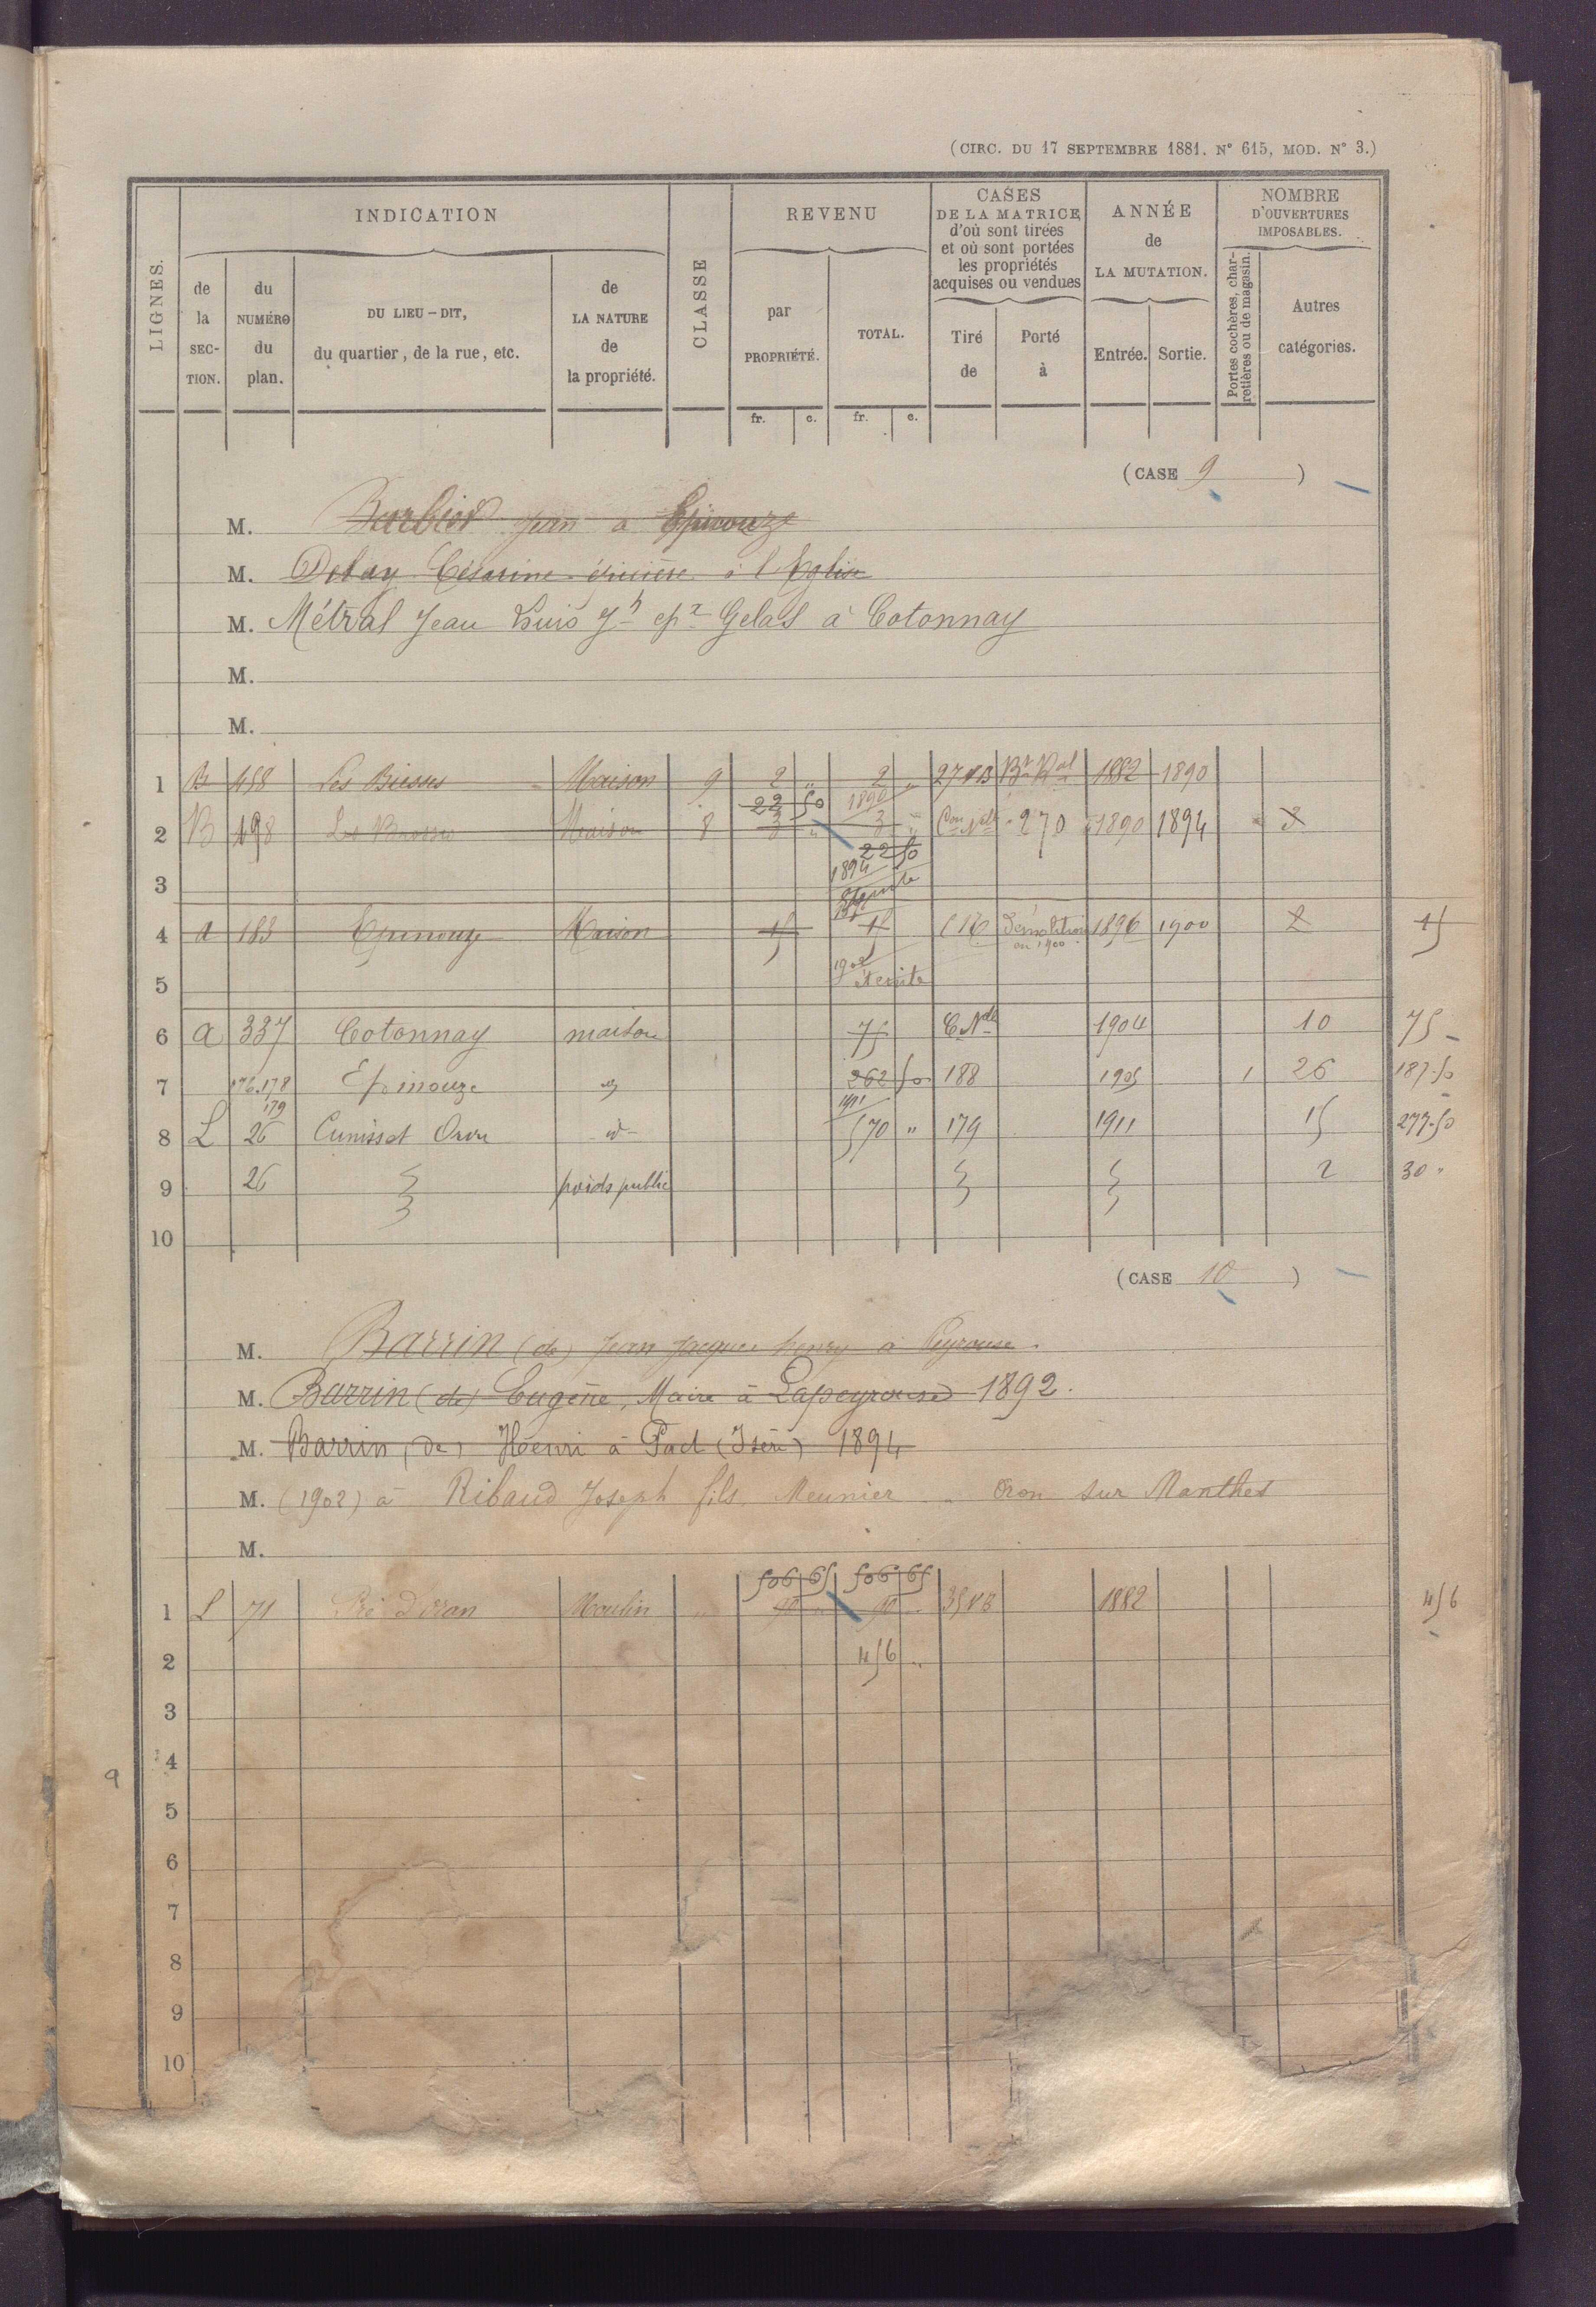 (CIRC. DU 17 SEPTEMBRE 1881. N° 615, MOD. N° 3.)
LIGNES.
INDICATION
de la SECTION.
du NUMÉRO du plan.
DU LIEU-DIT, du quartier, de la rue, etc.
de LA NATURE de la propriété.
CLASSE
REVENU
par PROPRIÉTÉ.
TOTAL.
fr. c. fr. c.
CASES DE LA MATRICE d'où sont tirées et où sont portées les propriétés acquises ou vendues
Tiré de
Porté à
ANNÉE de LA MUTATION.
Entrée. Sortie.
NOMBRE D'OUVERTURES IMPOSABLES.
Portes cochères, charretières ou de magasin.
Autres catégories.
(CASE 9)
M. Barbier Jean à Epinouze
M. Delay Césarine épicière à l'Eglise
M. Métral Jean Louis Jh ep. Gelas à Cotonnay
M.
M.
1 B 458 Les Maison 9 2 " 2 " 1882 1890
22 50 1890
2 B 498 Les Maison 8 3 " 3 " Con Nelle 270 1890 1894 2
22 50
1894
3
4 a 183 Epinouze Maison 15 15 Démolition en 1900 1896 1900 2 15
5 Exempte
6 a 337 Cotonnay maison 75 C Nlle 1904 10 75
7 176.178 179 Epinouze 262 50 188 1905 1 26 187.50
1911
8 L 26 Cunisset Oron - d - 570 " 179 1911 15 277.50
9 26 poids public 2 30 "
10
(CASE 10)
M. Barrin (de) Jean Jacques henry à Peyrouse.
M. Barrin (de) Eugène, Maire à Lapeyrouse 1892.
M. Barrin (de) Henri à Pact (Isère) 1894
M. (1902) à Ribaud Joseph fils Meunier Oron sur Manthes
M.
506 65 506 65
1 L 71 Pré d'Oron Moulin 1882 456
2 456 "
3
4
9
5
6
7
8
9
10